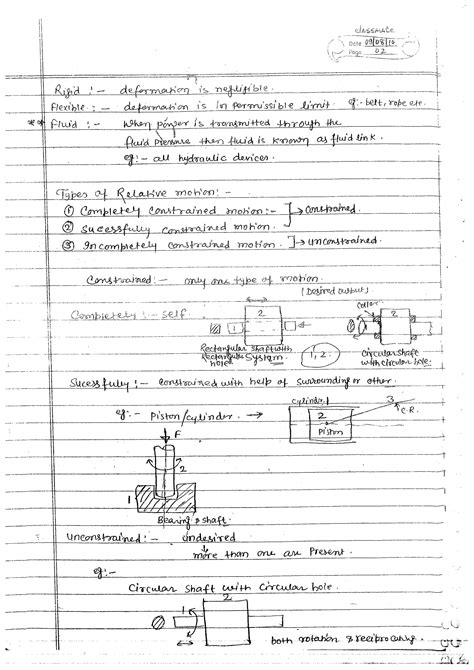 classmate
Date 09/08/16
Page 02
Rigid :- deformation is negligible.
Flexible :- deformation is in permissible limit. eg:- belt, rope etc.
** Fluid :- When power is transmitted through the
fluid pressure then fluid is known as fluid link.
eg:- all hydraulic devices.
Types of Relative motion:-
① Completely constrained motion:-
② Sucessfully constrained motion.
→ constrained.
③ Incompletely constrained motion. → unconstrained.
Constrained:- only one type of motion.
(Desired output)
Completely :- self
2
1
Rectangular shaft with
Rectangular System.
hole
1, 2.
Collar
2
Circular shaft
with circular hole.
Sucessfully:- constrained with help of surrounding or other.
eg:- Piston/cylinder. →
Cylinder 1
2
Piston
3
C.R.
F
2
1
Bearing & shaft.
Unconstrained:- undesired
more than one are Present.
eg:-
Circular shaft with Circular hole.
2
1
both rotation & reciprocating.